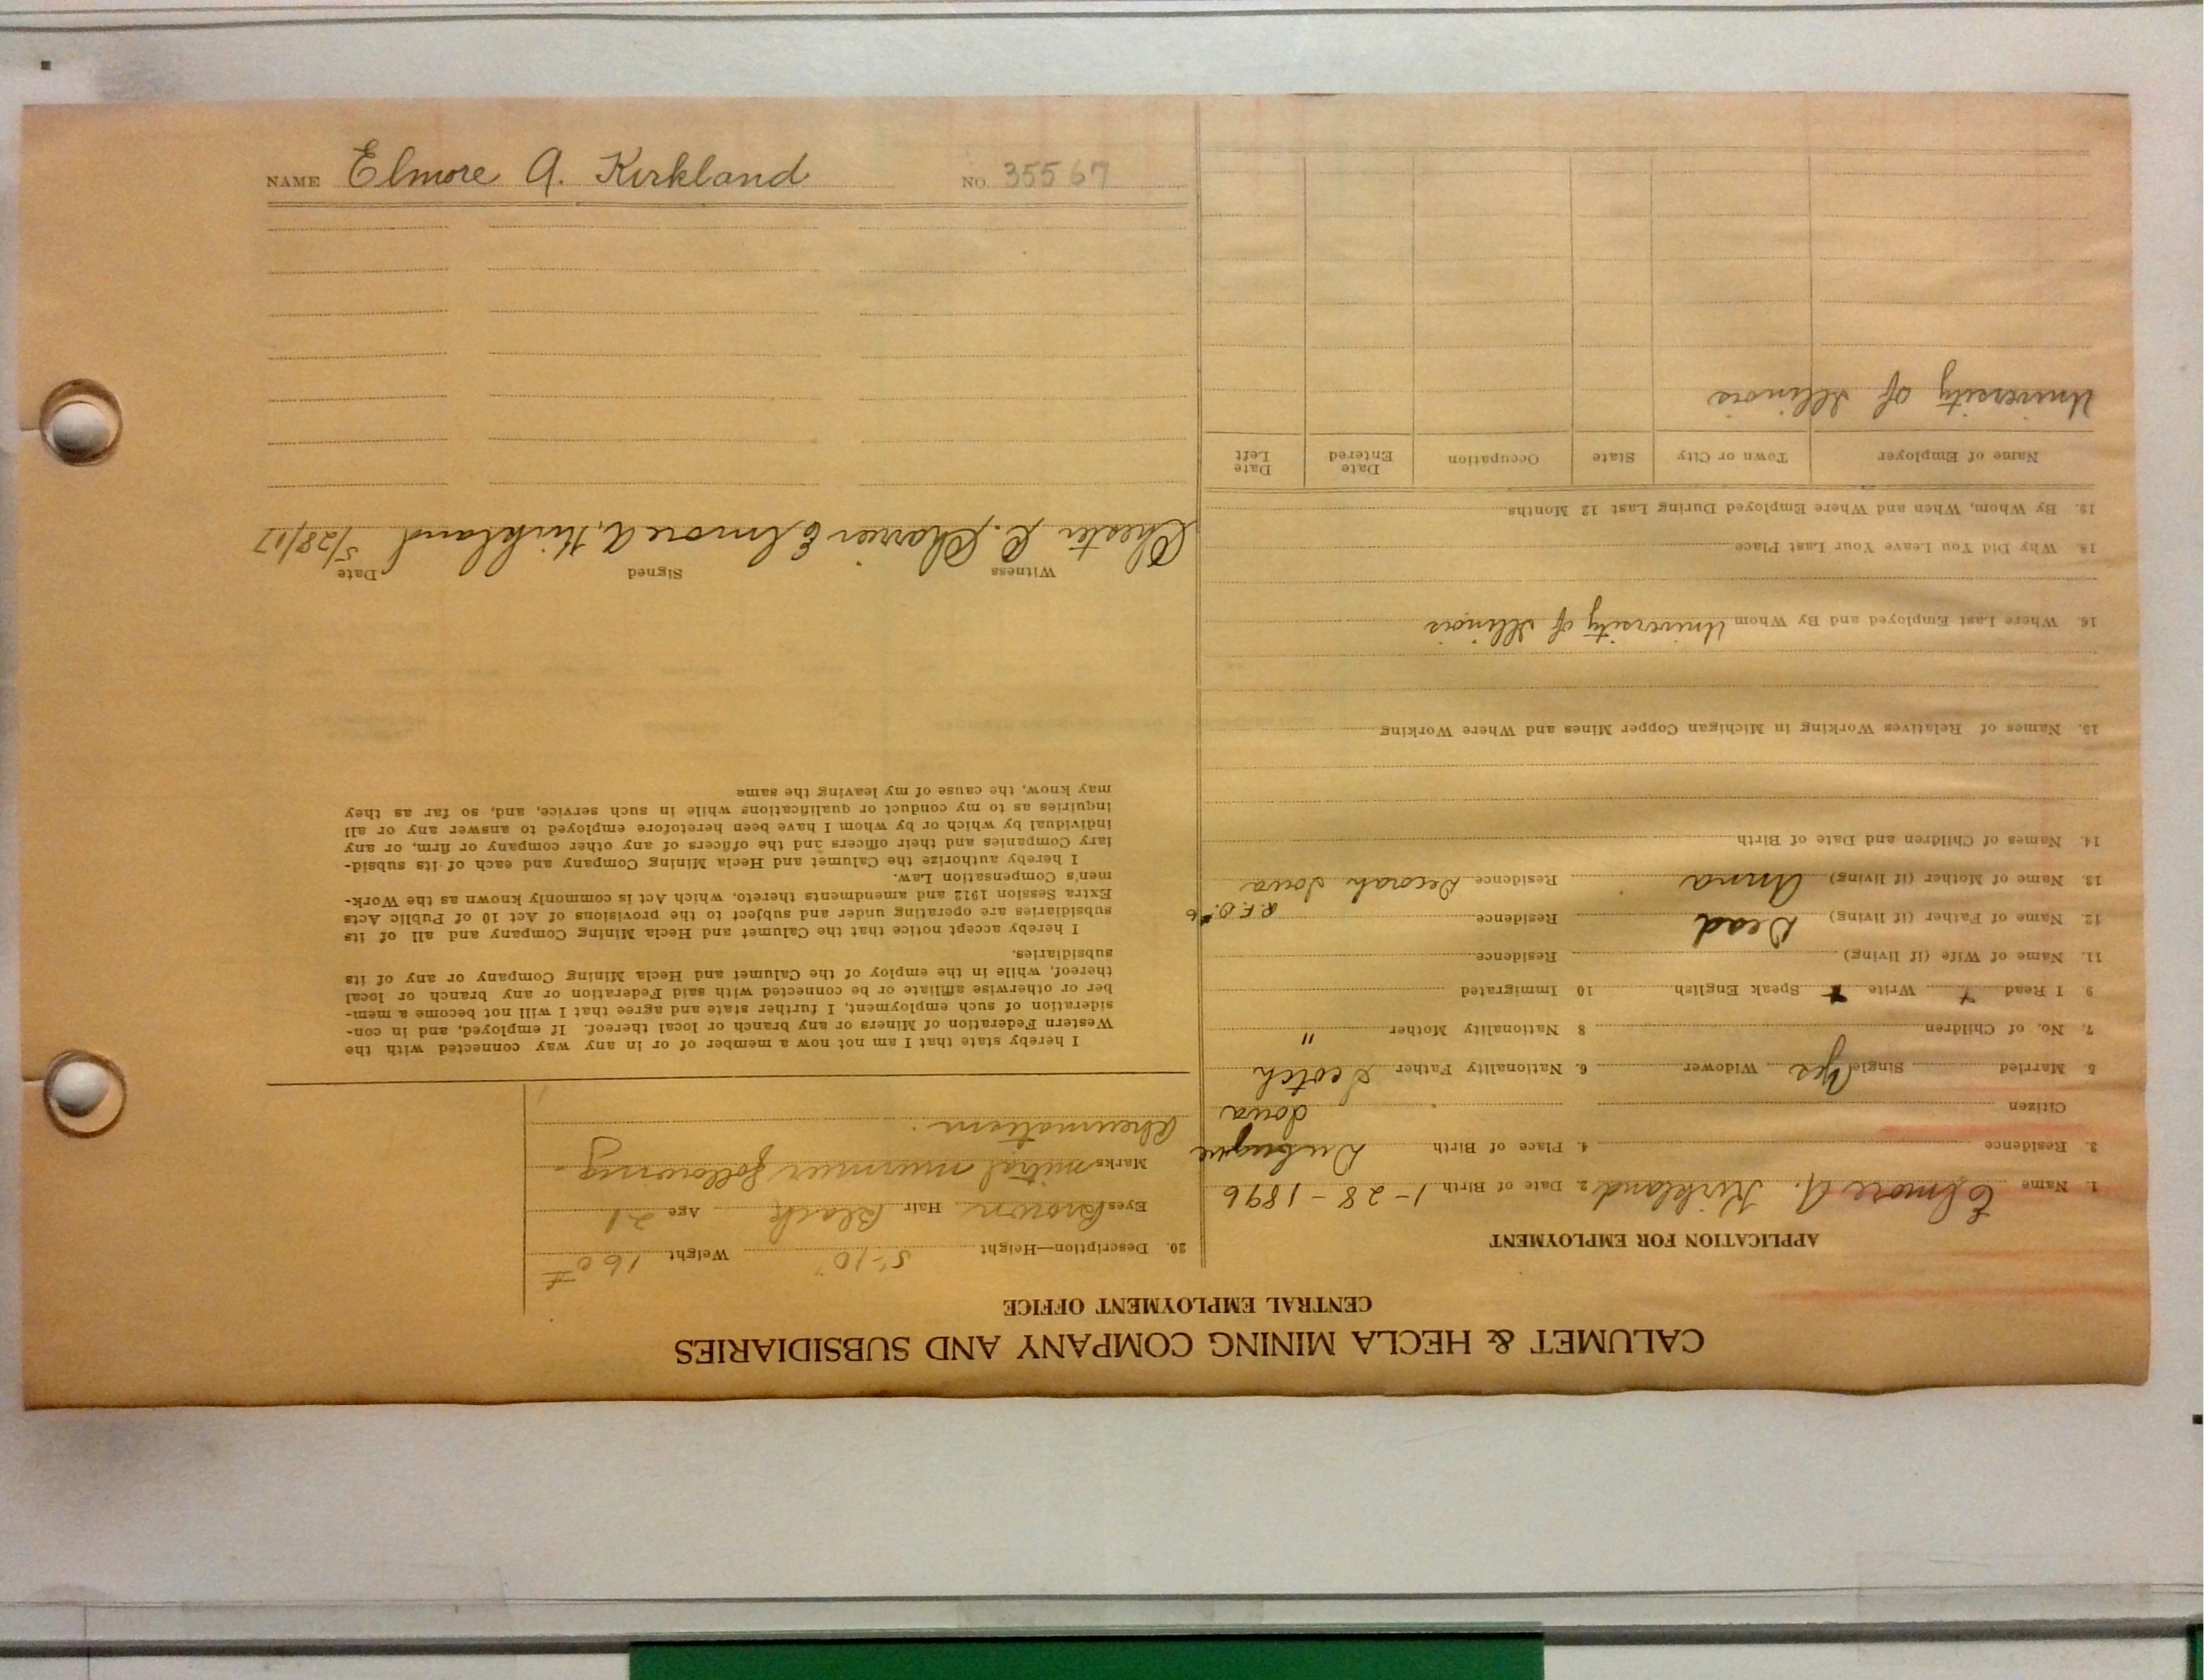 NAME Elmore A. Kirkland NO. 35567
CALUMET & HECLA MINING COMPANY AND SUBSIDIARIES
CENTRAL EMPLOYMENT OFFICE
APPLICATION FOR EMPLOYMENT
1. Name Elmore A. Kirkland 2. Date of Birth 1-28-1896
3. Residence 4. Place of Birth Dubuque
Citizen Iowa
5. Married Single Yes Widower 6. Nationality Father Scotch
7. No. of Children 8 Nationality Mother "
9 I Read + Write + Speak English 10 Immigrated
11. Name of Wife (if living) Residence
12. Name of Father (if living) Dead Residence R.F.D. #6
13. Name of Mother (if living) Anna Residence Decorah Iowa
14. Names of Children and Date of Birth
15. Names of Relatives Working in Michigan Copper Mines and Where Working
16. Where Last Employed and By Whom University of Illinois
18. Why Did You Leave Your Last Place
19. By Whom, When and Where Employed During Last 12 Months
Name of Employer Town or City State Occupation Date Entered Date Left
University of Illinois
20. Description—Height 5'-10" Weight 160#
Eyes Brown Hair Black Age 21
Marks mitral murmur following
Rheumatism.
I hereby state that I am not now a member of or in any way connected with the
Western Federation of Miners or any branch or local thereof. If employed, and in con-
sideration of such employment, I further state and agree that I will not become a mem-
ber or otherwise affiliate or be connected with said Federation or any branch or local
thereof, while in the employ of the Calumet and Hecla Mining Company or any of its
subsidiaries.
I hereby accept notice that the Calumet and Hecla Mining Company and all of its
subsidiaries are operating under and subject to the provisions of Act 10 of Public Acts
Extra Session 1912 and amendments thereto, which Act is commonly known as the Work-
men's Compensation Law.
I hereby authorize the Calumet and Hecla Mining Company and each of its subsid-
iary Companies and their officers and the officers of any other company or firm, or any
individual by which or by whom I have been heretofore employed to answer any or all
inquiries as to my conduct or qualifications while in such service, and, so far as they
may know, the cause of my leaving the same
Witness Signed Date
Chester C. Elmore A. Kirkland 5/28/17